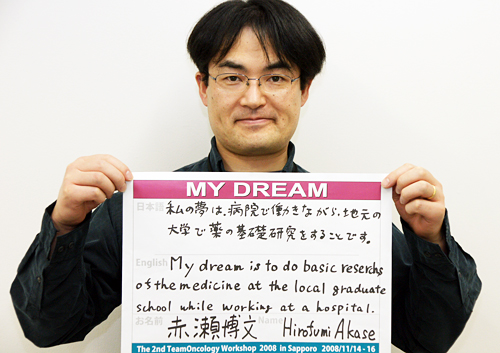 MY DREAM
日本語
私の夢は、病院で働きながら、地元の
大学で薬の基礎研究をすることです。
English
My dream is to do basic reserchs
of the medicine at the local graduate
school while working at a hospital.
お名前 赤瀬博文 Name Hirofumi Akase
The 2nd TeamOncology Workshop 2008 in Sapporo 2008/11/14-16